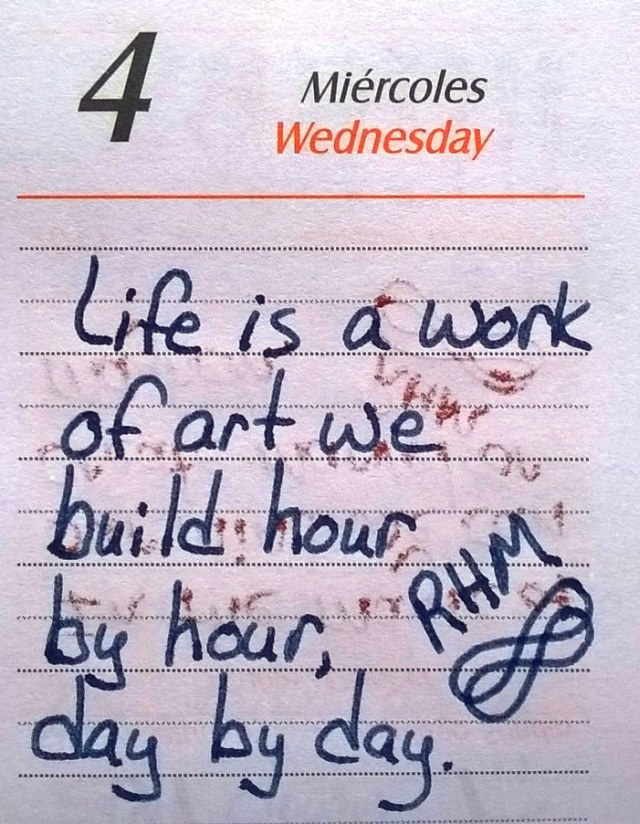 4
Miércoles
Wednesday
Life is a work
of art we
build hour
by hour,
day by day.
RHM